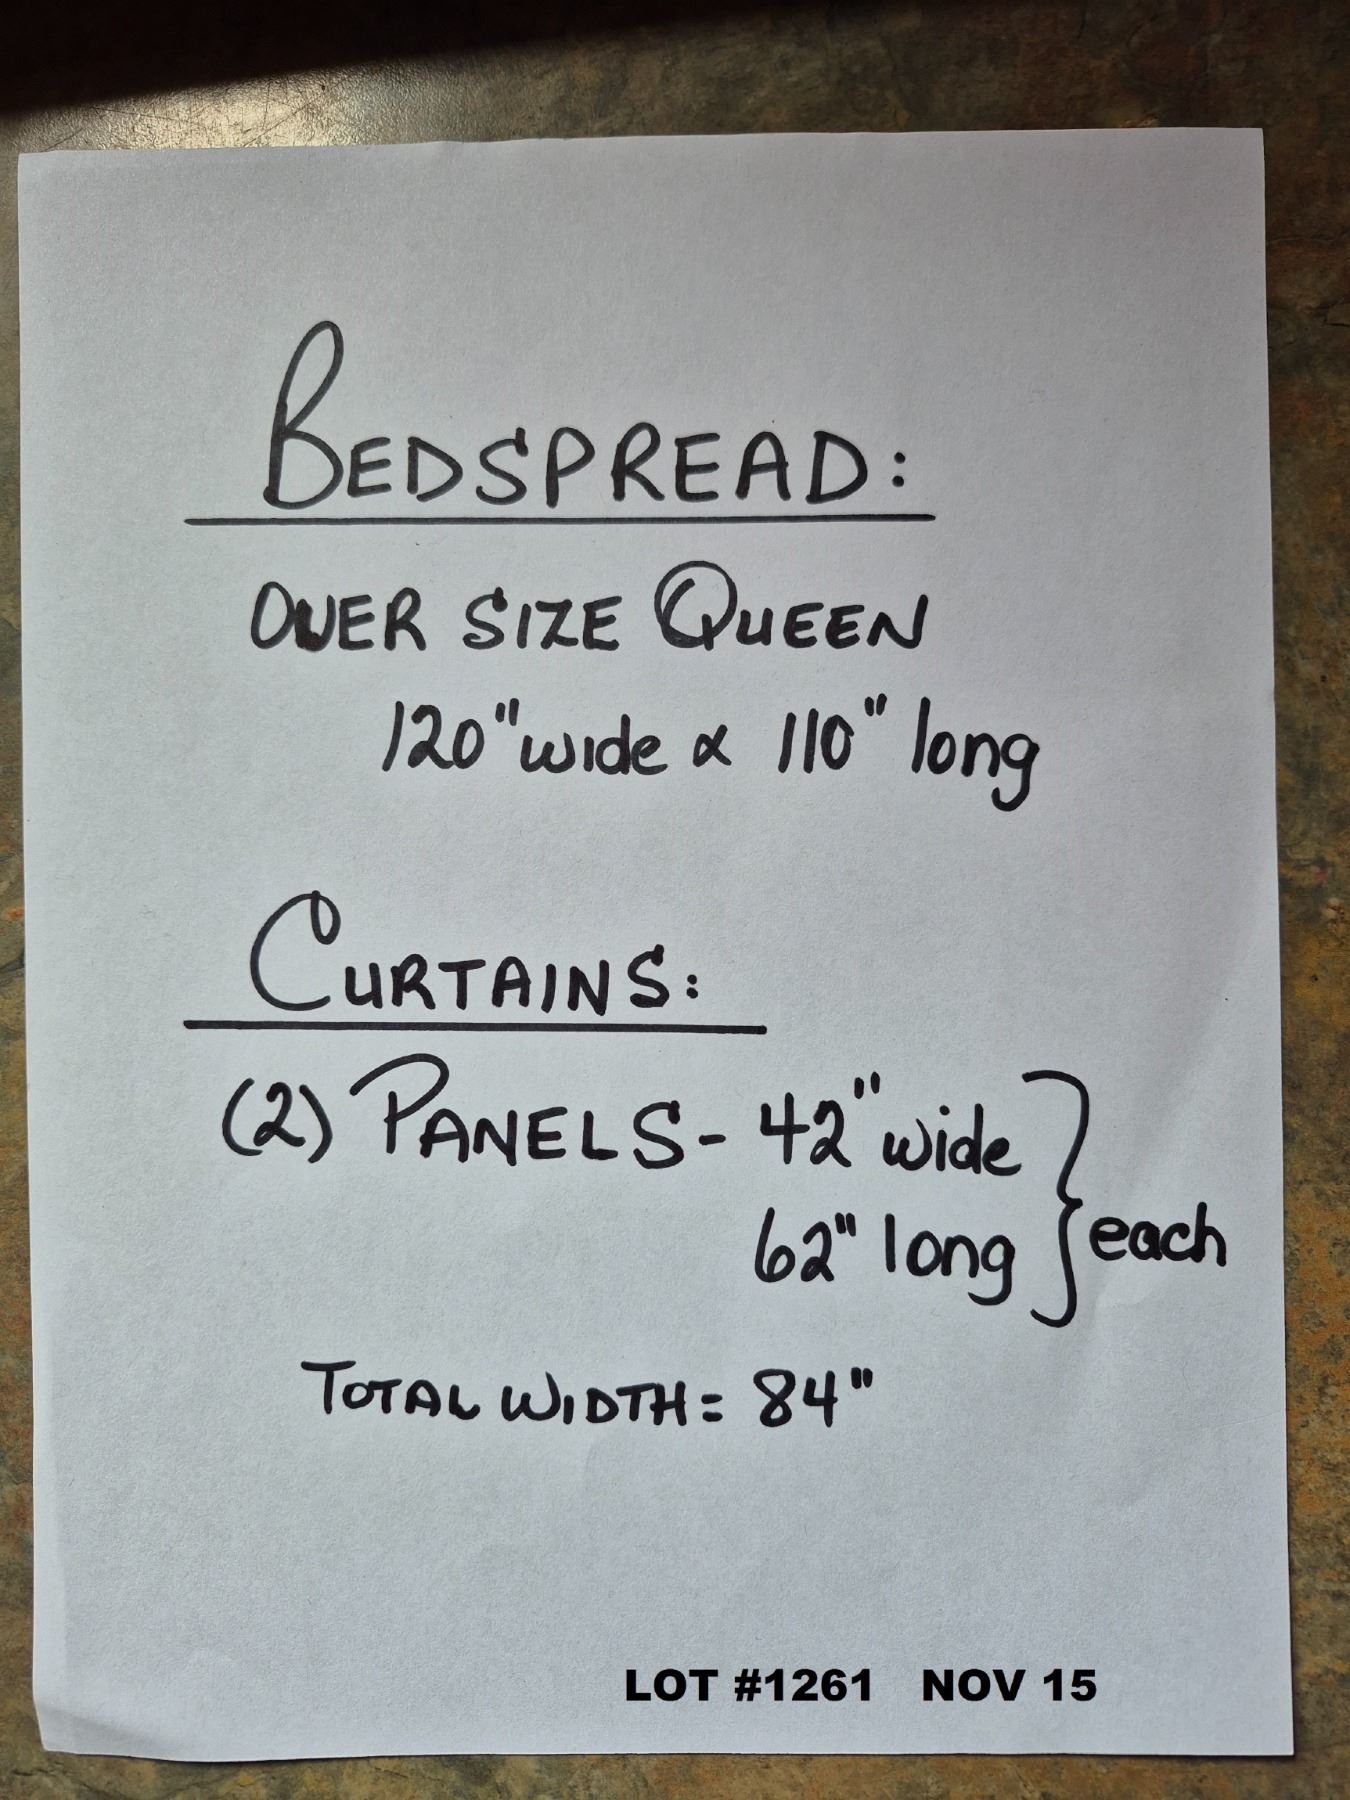 BEDSPREAD:
OVER SIZE QUEEN
120" wide x 110" long
CURTAINS:
(2) PANELS - 42" wide
62" long } each
TOTAL WIDTH = 84"
LOT #1261 NOV 15